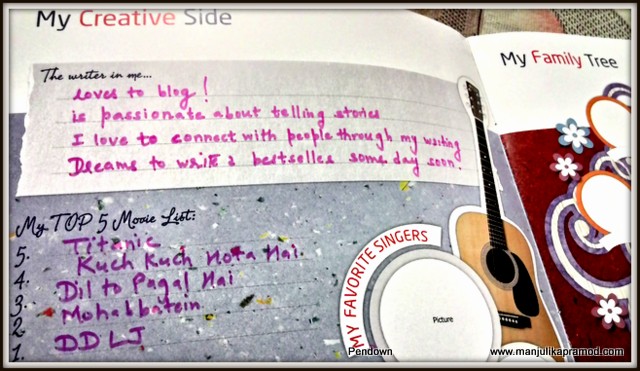 My Creative Side
The writer in me...
Loves to blog!
is passionate about telling stories
I love to connect with people through my writing
Dreams to write a bestseller some day soon.
My TOP 5 Movie List:
5. Titanic
4. Kuch Kuch Hota Hai.
3. Dil to Pagal Hai
2 Mohabbatein
1. DDLJ
MY FAVORITE SINGERS
Picture
My Family Tree
Pendown
www.manjulikapramod.com